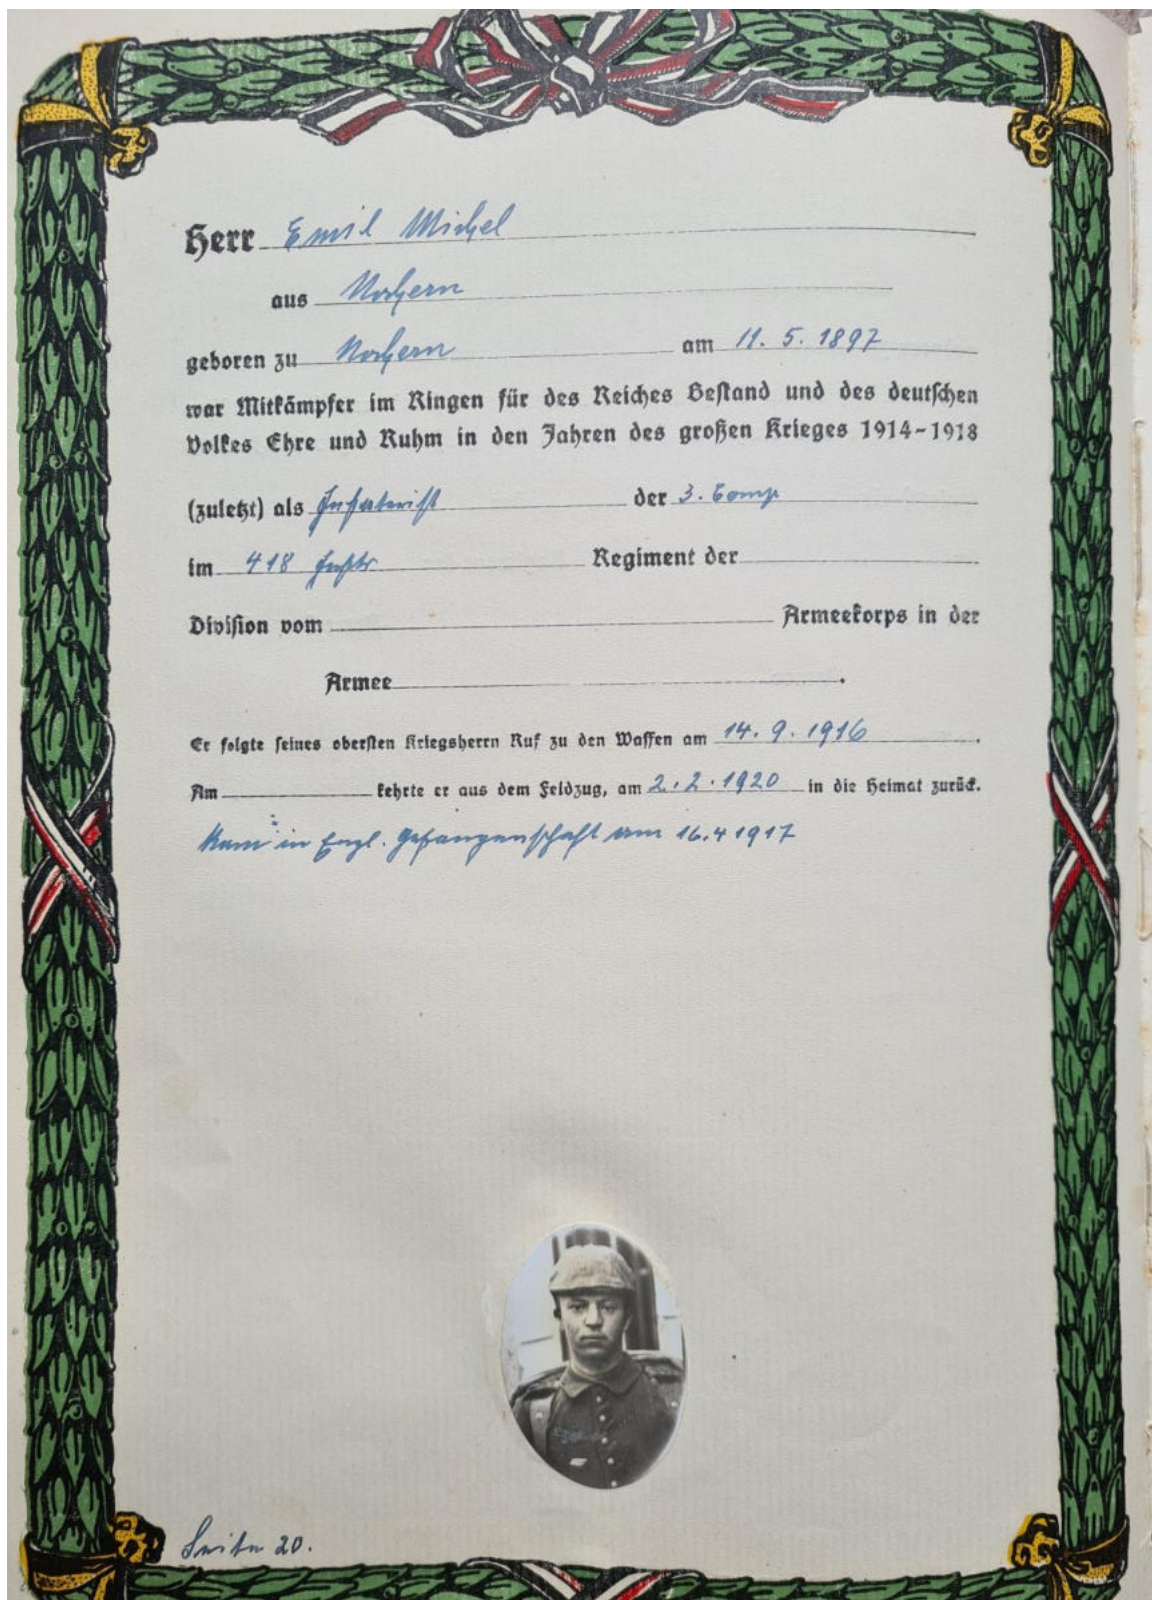 Herr Emil Michel
aus Norheim
geboren zu Norheim am 11. 5. 1897
war Mitkämpfer im Ringen für des Reiches Bestand und des deutschen
Volkes Ehre und Ruhm in den Jahren des großen Krieges 1914-1918
(zuletzt) als Infanterist der 3. Comp
im 418 Inftr Regiment der
Division vom Armeekorps in der
Armee .
Er folgte seines obersten Kriegsherrn Ruf zu den Waffen am 14. 9. 1916 .
Am kehrte er aus dem Feldzug, am 2. 2. 1920 in die Heimat zurück.
Kam in Engl. Gefangenschaft am 16.4 1917
Seite 20.